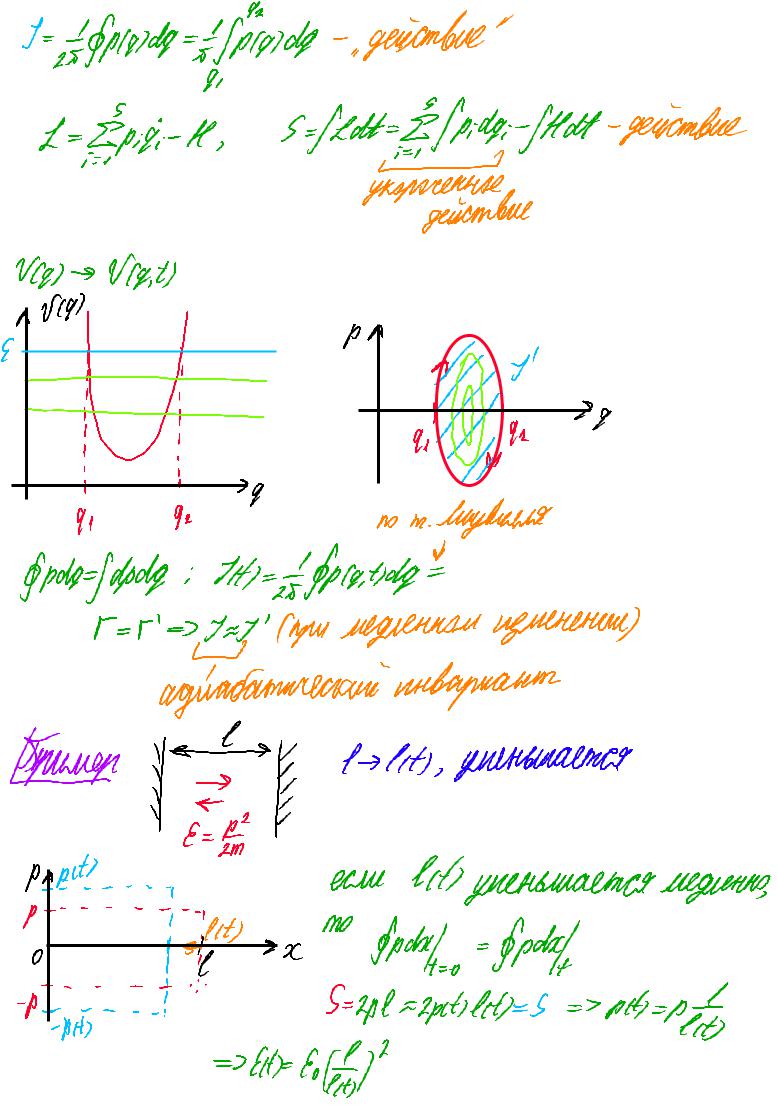 J = 1/2π ∮p(q)dq = 1/π ∫_{q₁}^{q₂} p(q)dq - „действие"
L = Σ_{i=1}^{s} pᵢq̇ᵢ - H, S = ∫Ldt = Σ_{i=1}^{s} ∫pᵢdqᵢ - ∫Hdt - действие
укороченное
действие
V(q) → V(q,t)
V(q)
ε
q₁ q₂ q
p
J'
q₁ q₂ q
по т. Лиувилля
∮pdq = ∫dpdq ; J(t) = 1/2π ∮p(q,t)dq =
Γ = Γ' => J ≈ J' (при медленном изменении)
адиабатический инвариант
Пример
l
l → l(t), уменьшается
ε = p²/2m
p p(t)
p
l(t)
0 l x
-p
-p(t)
если l(t) уменьшается медленно,
то ∮pdx|_{t=0} = ∮pdx|_t
S = 2pl ≈ 2p(t)l(t) = S => p(t) = p l/l(t)
=> ε(t) = ε₀(l/l(t))²